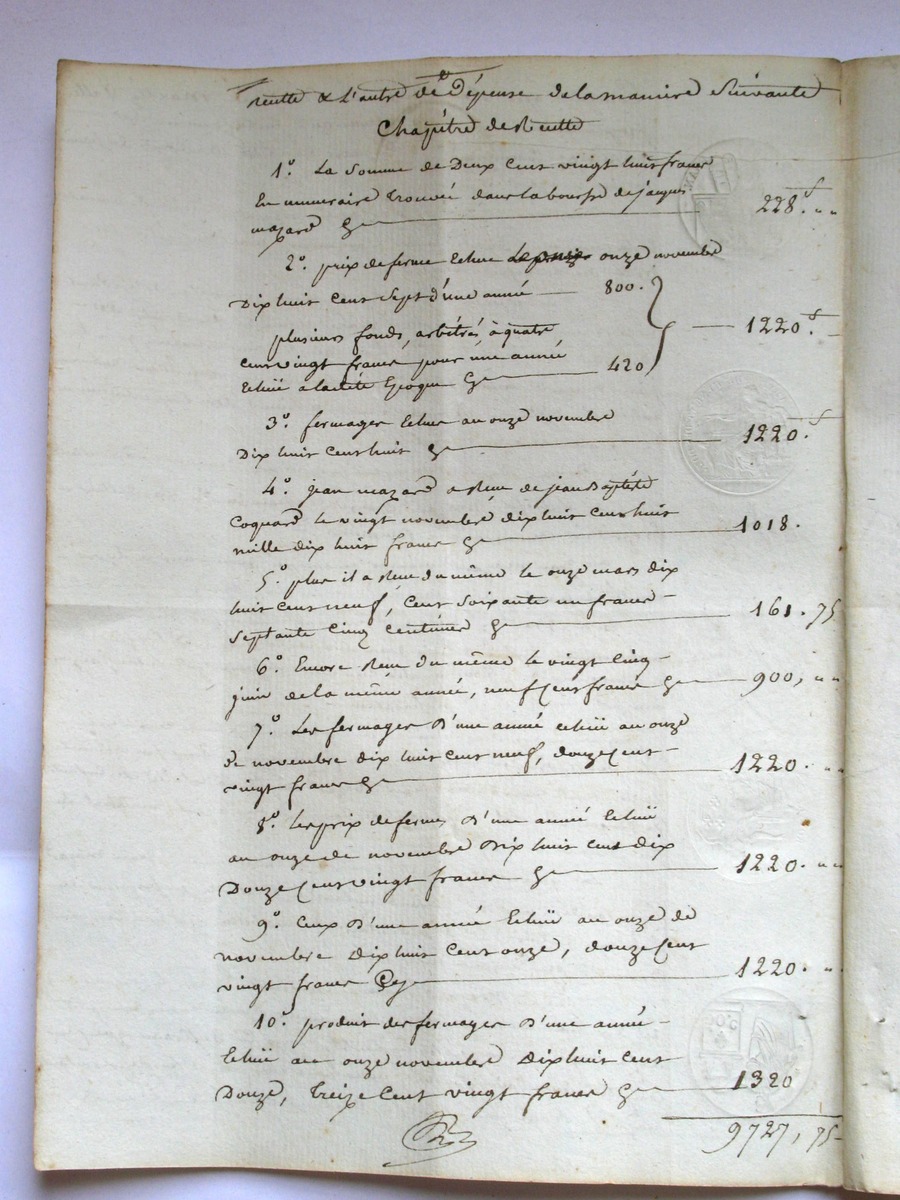 cette & L'autre de Dépense de la maniere Suivante
Chapitre de Recette
1.° La Somme de Deux Cent vingt huit francs
En numeraire trouvée dans la bourse de jacques
mazard Cy 228.f " "
2.° prix de ferme Echue onze novembre
Dix huit Cent Sept d'une année 800.
plusieurs fonds, arbitrés, à quatre
Cent vingt francs pour une année 1220.f
Echuë a la dite Epoque Cy 420
3.° fermages Echue au onze novembre
Dix huit Cent huit Cy 1220.f
4.° jean mazard a Reçu de jean Baptiste
Coquard le vingt novembre dix huit Cent huit
mille dix huit francs Cy 1018.
5.° plus il a Reçu du même le onze mars dix
huit Cent neuf, Cent Soixante un francs
Septante Cinq Centimes Cy 161. 75
6.° Encore Reçu du même le vingt Cinq
juin de la même année, neuf Cent francs Cy 900, " "
7.° Les fermages d'une année echuë au onze
de novembre dix huit Cent neuf, douze Cent
vingt francs Cy 1220. "
8.° Les prix de fermes d'une année Echuë
au onze de novembre Dix huit Cent dix
Douze Cent vingt francs Cy 1220. " "
9.° Ceux d'une année Echuë au onze de
novembre Dix huit Cent onze, douze Cent
vingt francs Cy 1220. "
10.° produit des fermages d'une année
Echuë au onze novembre Dix huit Cent
Douze, treize Cent vingt francs Cy 1320
9727, 75